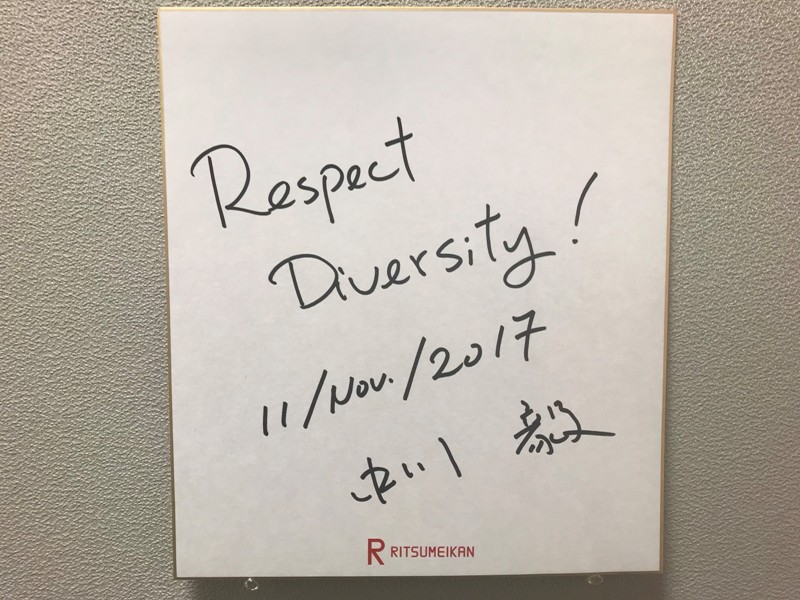 Respect
Diversity!
11/Nov./2017
中川 毅
R RITSUMEIKAN